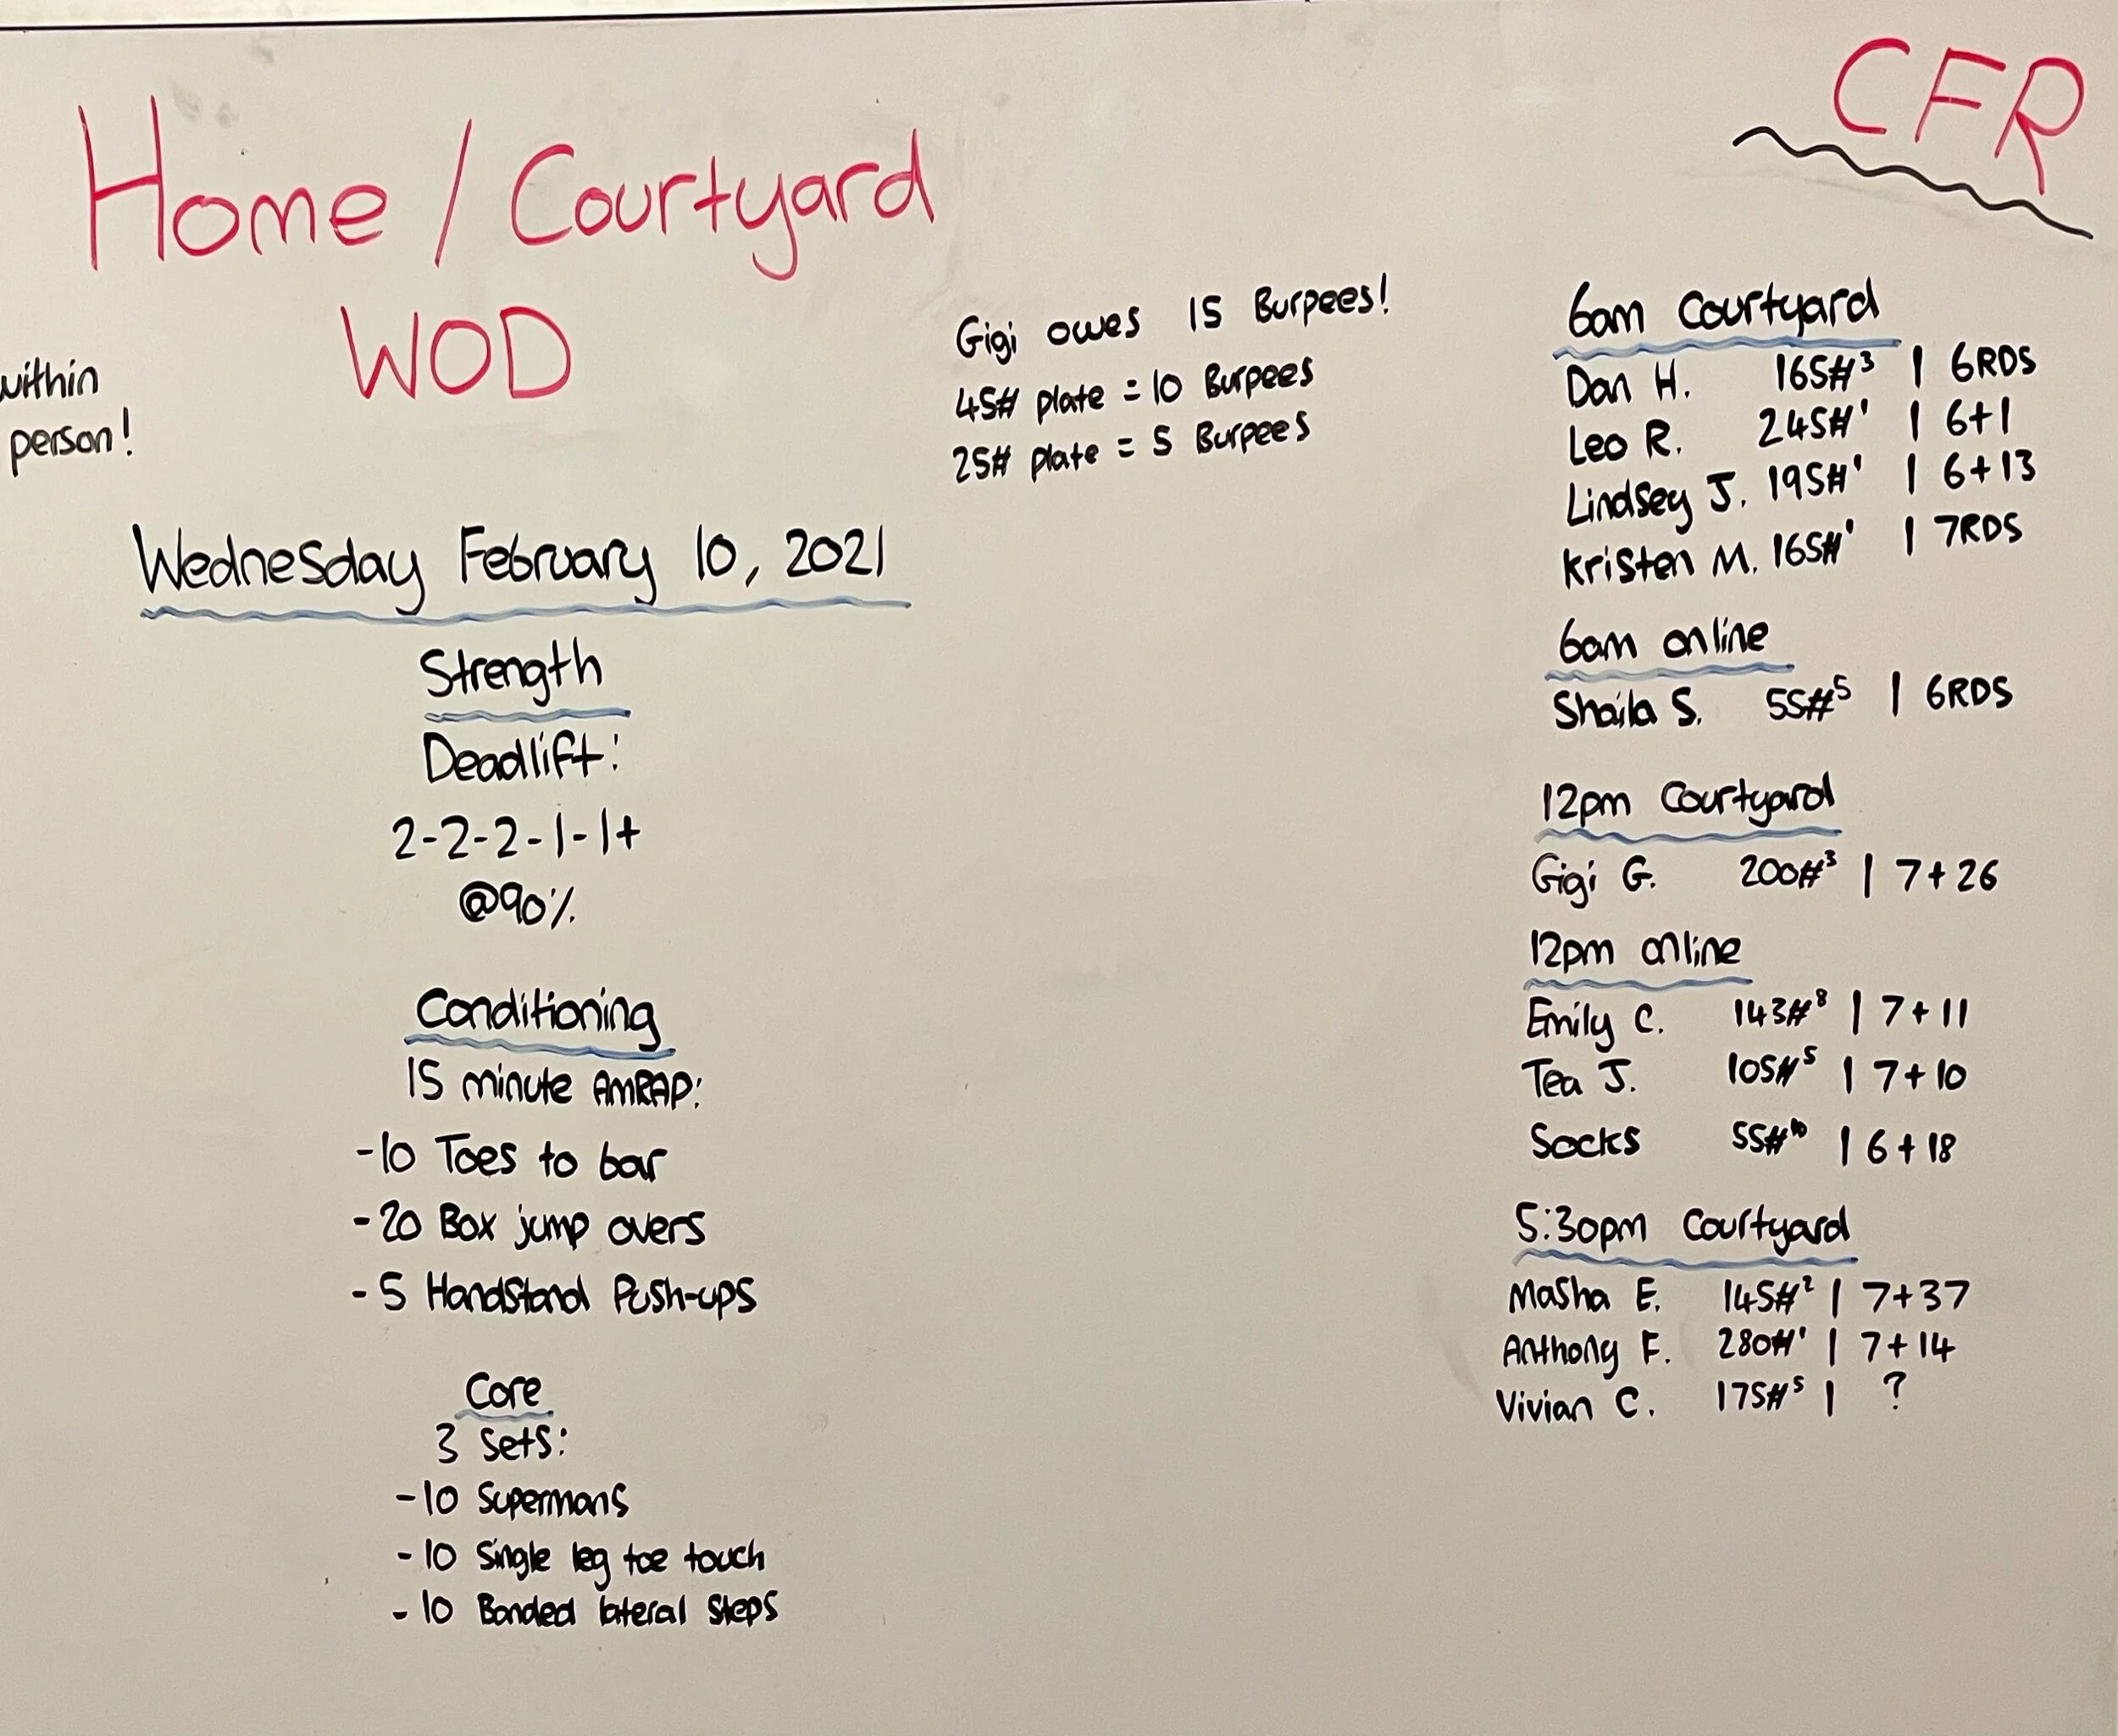 Home / Courtyard
WOD
CFR
within
person!
Gigi owes 15 Burpees!
45# plate = 10 Burpees
25# plate = 5 Burpees
Wednesday February 10, 2021
Strength
Deadlift:
2-2-2-1-1+
@90%
Conditioning
15 minute AMRAP:
-10 Toes to bar
-20 Box jump overs
-5 Handstand Push-ups
Core
3 Sets:
-10 Supermans
-10 Single leg toe touch
-10 Banded lateral steps
6am Courtyard
Dan H. 165#³ | 6RDS
Leo R. 245#¹ | 6+1
Lindsey J. 195#¹ | 6+13
Kristen M. 165#¹ | 7RDS
6am online
Shaila S. 55#⁵ | 6RDS
12pm Courtyard
Gigi G. 200#³ | 7+26
12pm online
Emily C. 143#⁸ | 7+11
Tea J. 105#⁵ | 7+10
Socks 55#¹⁰ | 6+18
5:30pm Courtyard
Masha E. 145#² | 7+37
Anthony F. 280#¹ | 7+14
Vivian C. 175#⁵ | ?